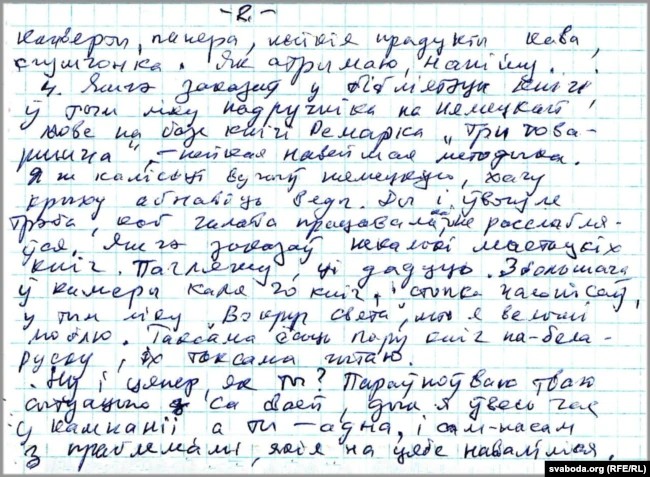 -2-
канверты, папера, нейкія прадукты, кава,
згушчонка. Як атрымаю, напішу.
4. Яшчэ заказаў у бібліятэцы кнігі,
ў тым ліку падручніка па нямецкай
мове на базе кнігі Рэмарка "Три това-
рища", – нейкая навейшая методыка.
Я ж калісьці вучыў нямецкую, хачу
крыху абнавіць веды. Ды і ўвогуле
трэба, каб галава працавала, не расслабля-
ўся. Яшчэ заказаў некалькі мастацкіх
кніг. Пагляжу, ці дадуць. Збольшага
ў камеры каля 20 кніг, і стопка часопісаў,
у тым ліку "Вокруг света", што я вельмі
люблю. Таксама ёсць пару кніг па-бела-
руску, іх таксама чытаю.
Ну і цяпер, як ты? Параўноўваю тваю
сітуацыю са сваёй, дык я ўвесь час
у кампаніі а ты – адна, і сам-насам
з праблемамі, якія на цябе наваліліся,
svaboda.org (RFE/RL)